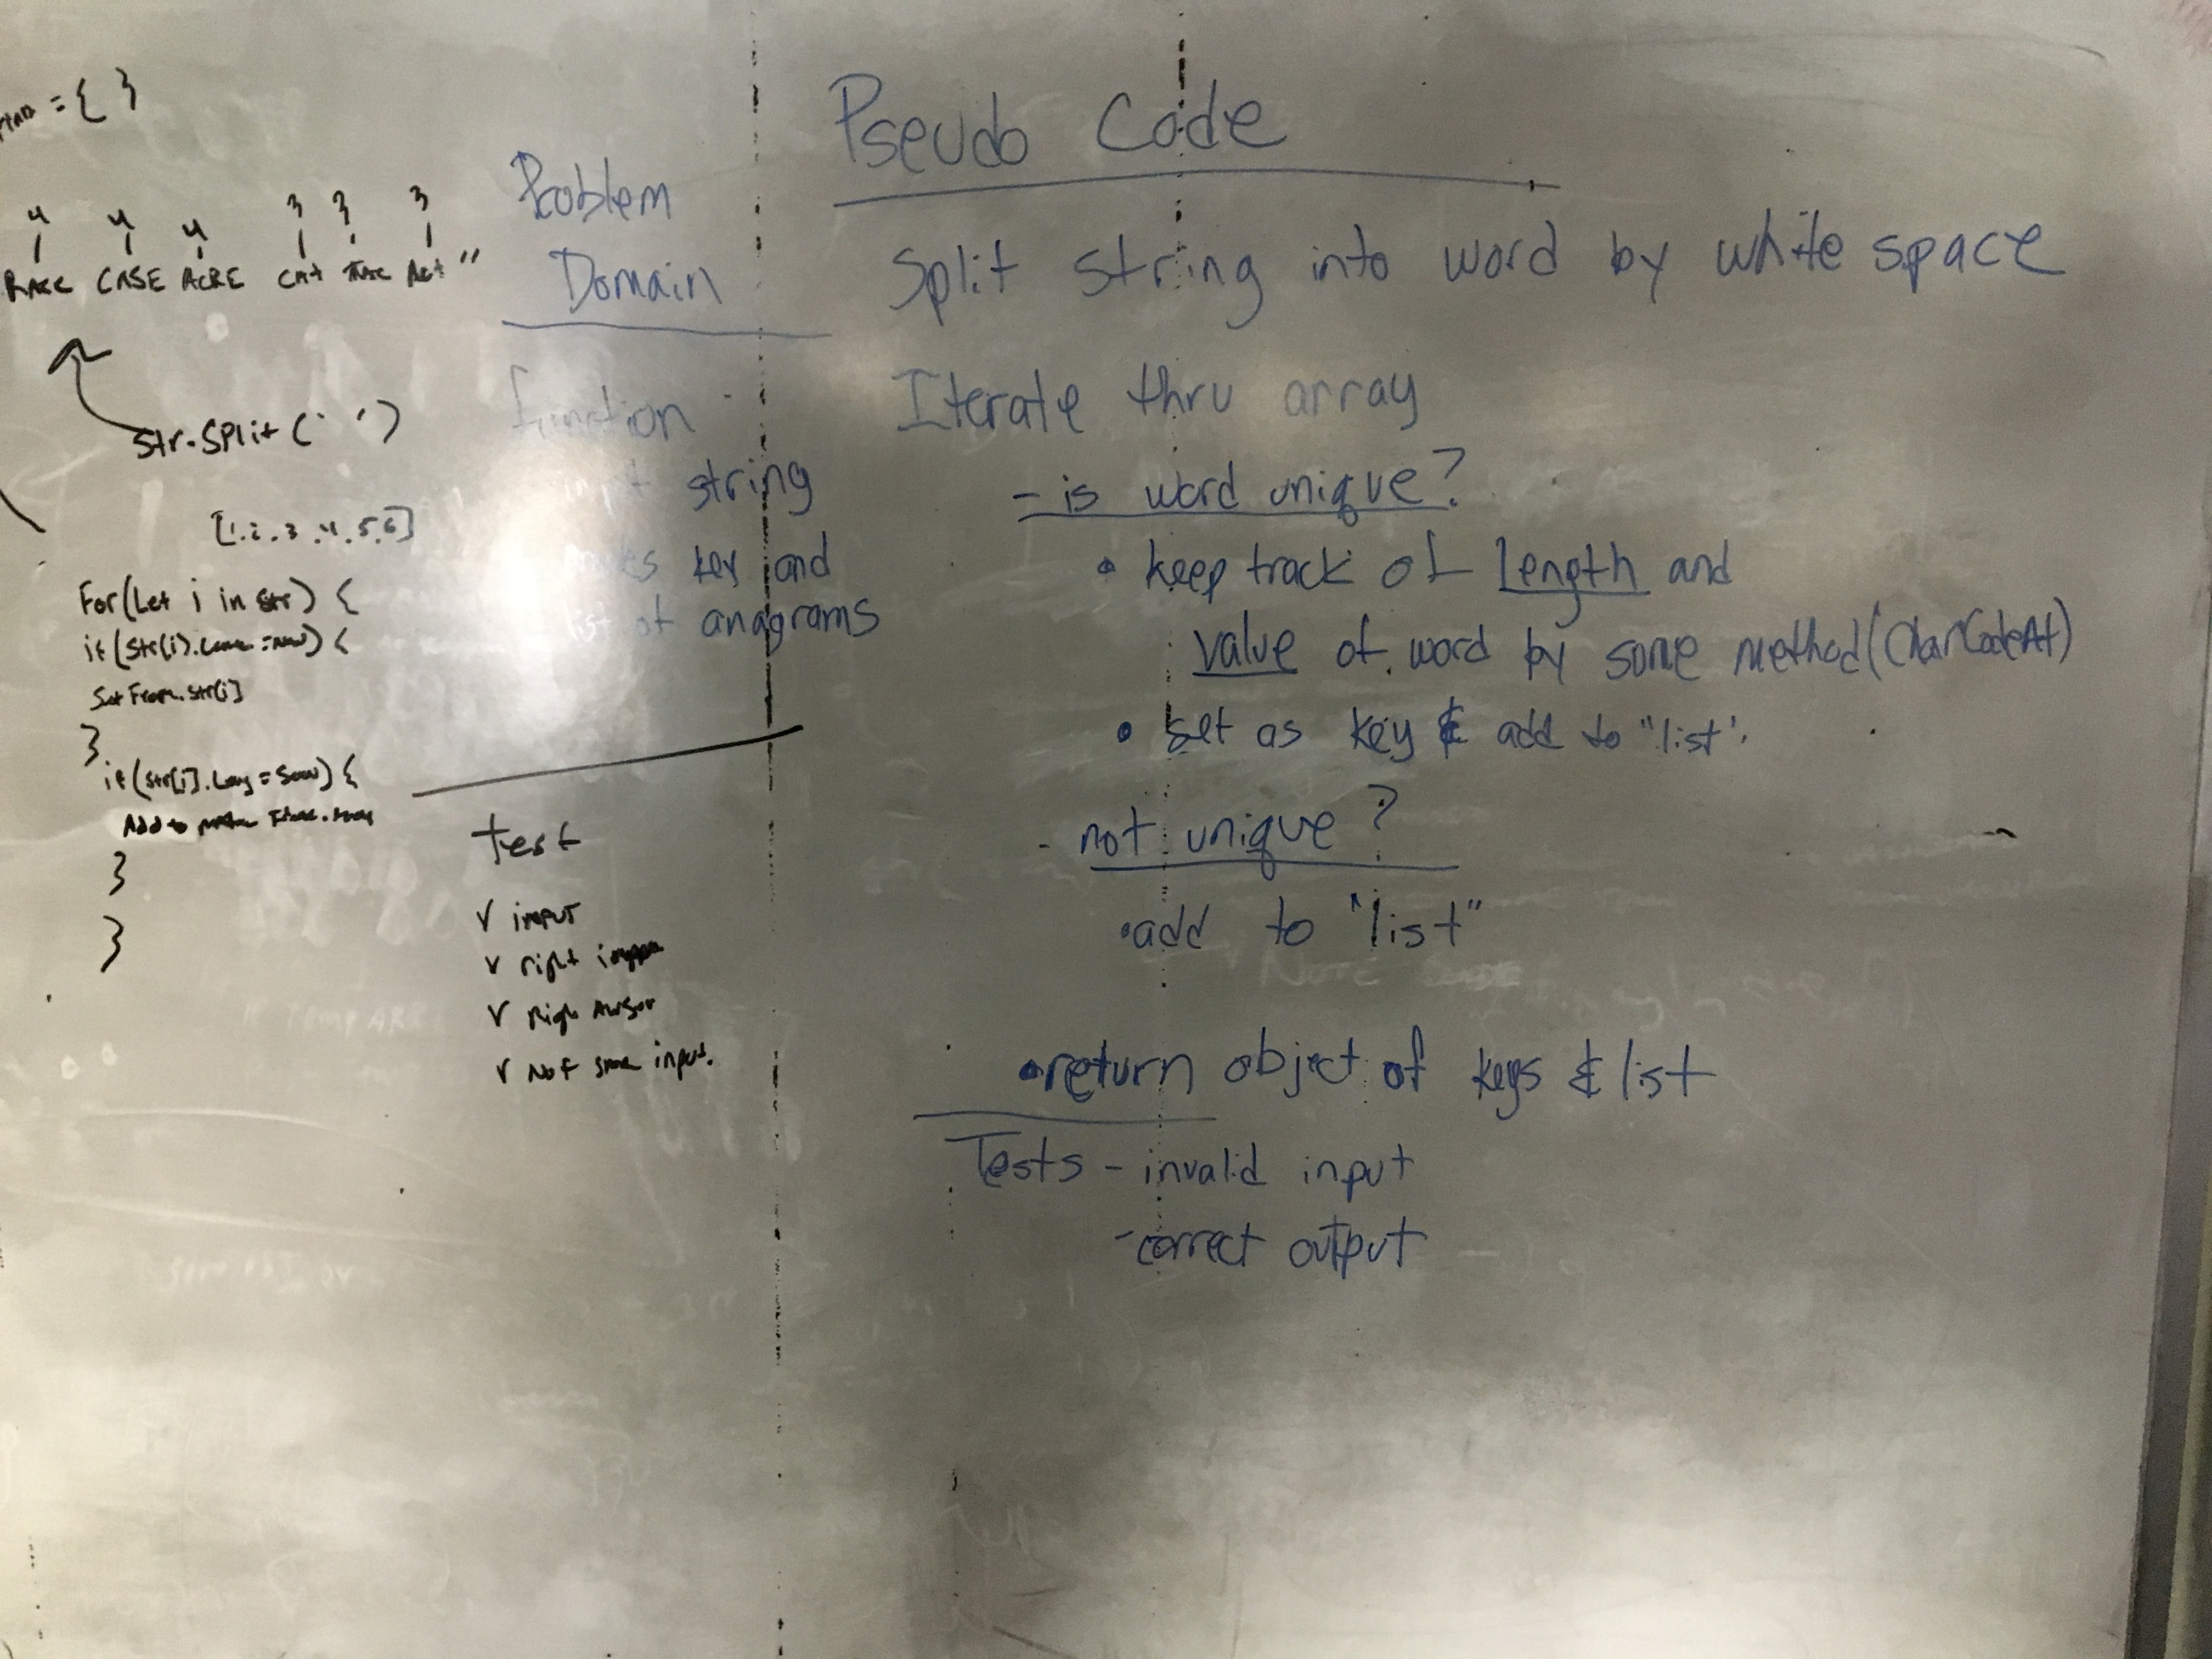 = { }
4 4 4 3 3 3
CASE ACRE CAt Act "
str.split(' ')
[1.2.3.4.5.6]
For(Let i in str) {
if(str(i).
str[i]
}
if(str[i].
Add to
}
}
Problem
Domain
function
string
key and
list of anagrams
test
√ input
√ right
√
√ Not same input.
Pseudo Code
Split string into word by white space
Iterate thru array
- is word unique?
• keep track of Length and
value of word by some method(CharCodeAt)
• set as key & add to "list".
- not unique?
• add to "list"
• return object of keys & list
Tests - invalid input
- correct output